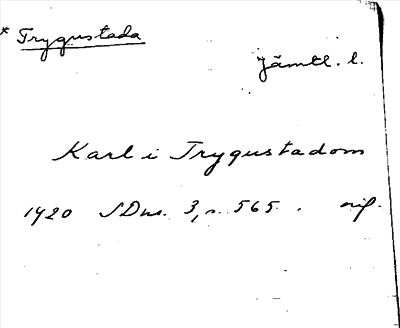 * Trygustada
Jämtl. l.
Karl i Trygustadom
1420 SDns. 3, s. 565. orig.